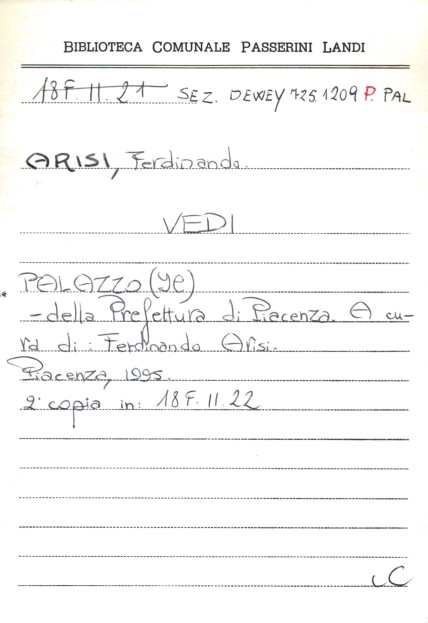 BIBLIOTECA COMUNALE PASSERINI LANDI
18F. II. 21 SEZ. DEWEY 725.1209 P. PAL
ARISI, Ferdinando.
VEDI
PALAZZO (Je)
- della Prefettura di Piacenza. A cu-
ra di: Ferdinando Arisi.
Piacenza, 1995.
2ª copia in: 18F. II. 22